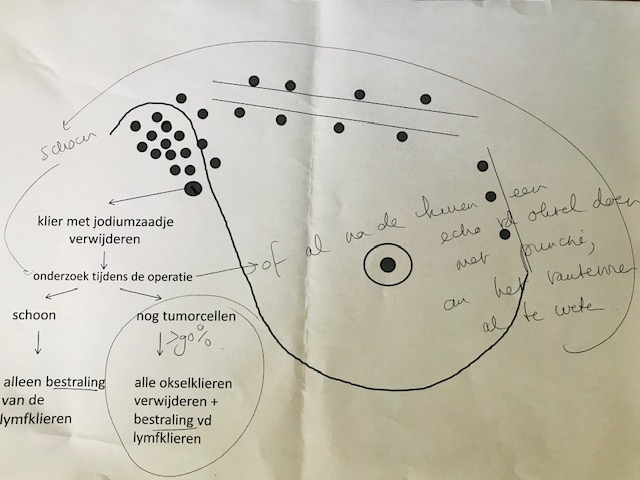 schoon
klier met jodiumzaadje
verwijderen
onderzoek tijdens de operatie
schoon
nog tumorcellen
>90%
alleen bestraling
van de
lymfklieren
alle okselklieren
verwijderen +
bestraling vd
lymfklieren
of al na de kuren een
echo vd oksel doen
met punctie,
om het
al te weten